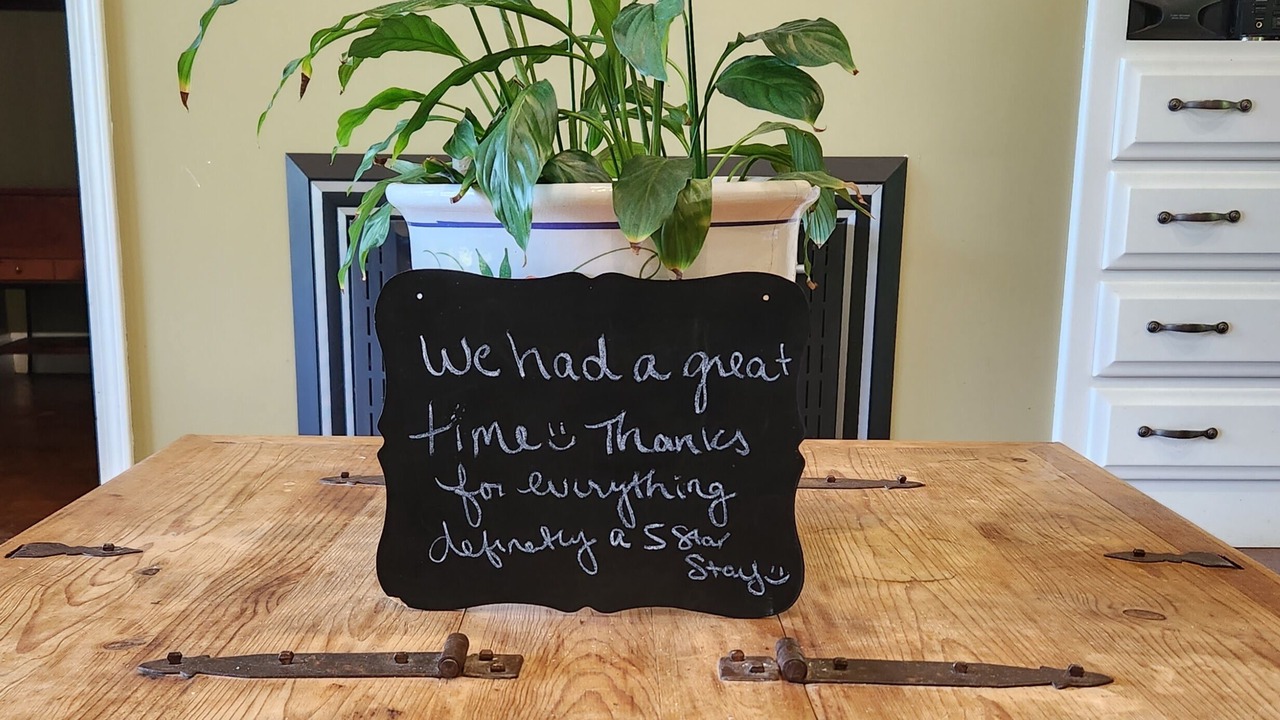 We had a great
time :) Thanks
for everything
definetly a 5 Star
Stay :)